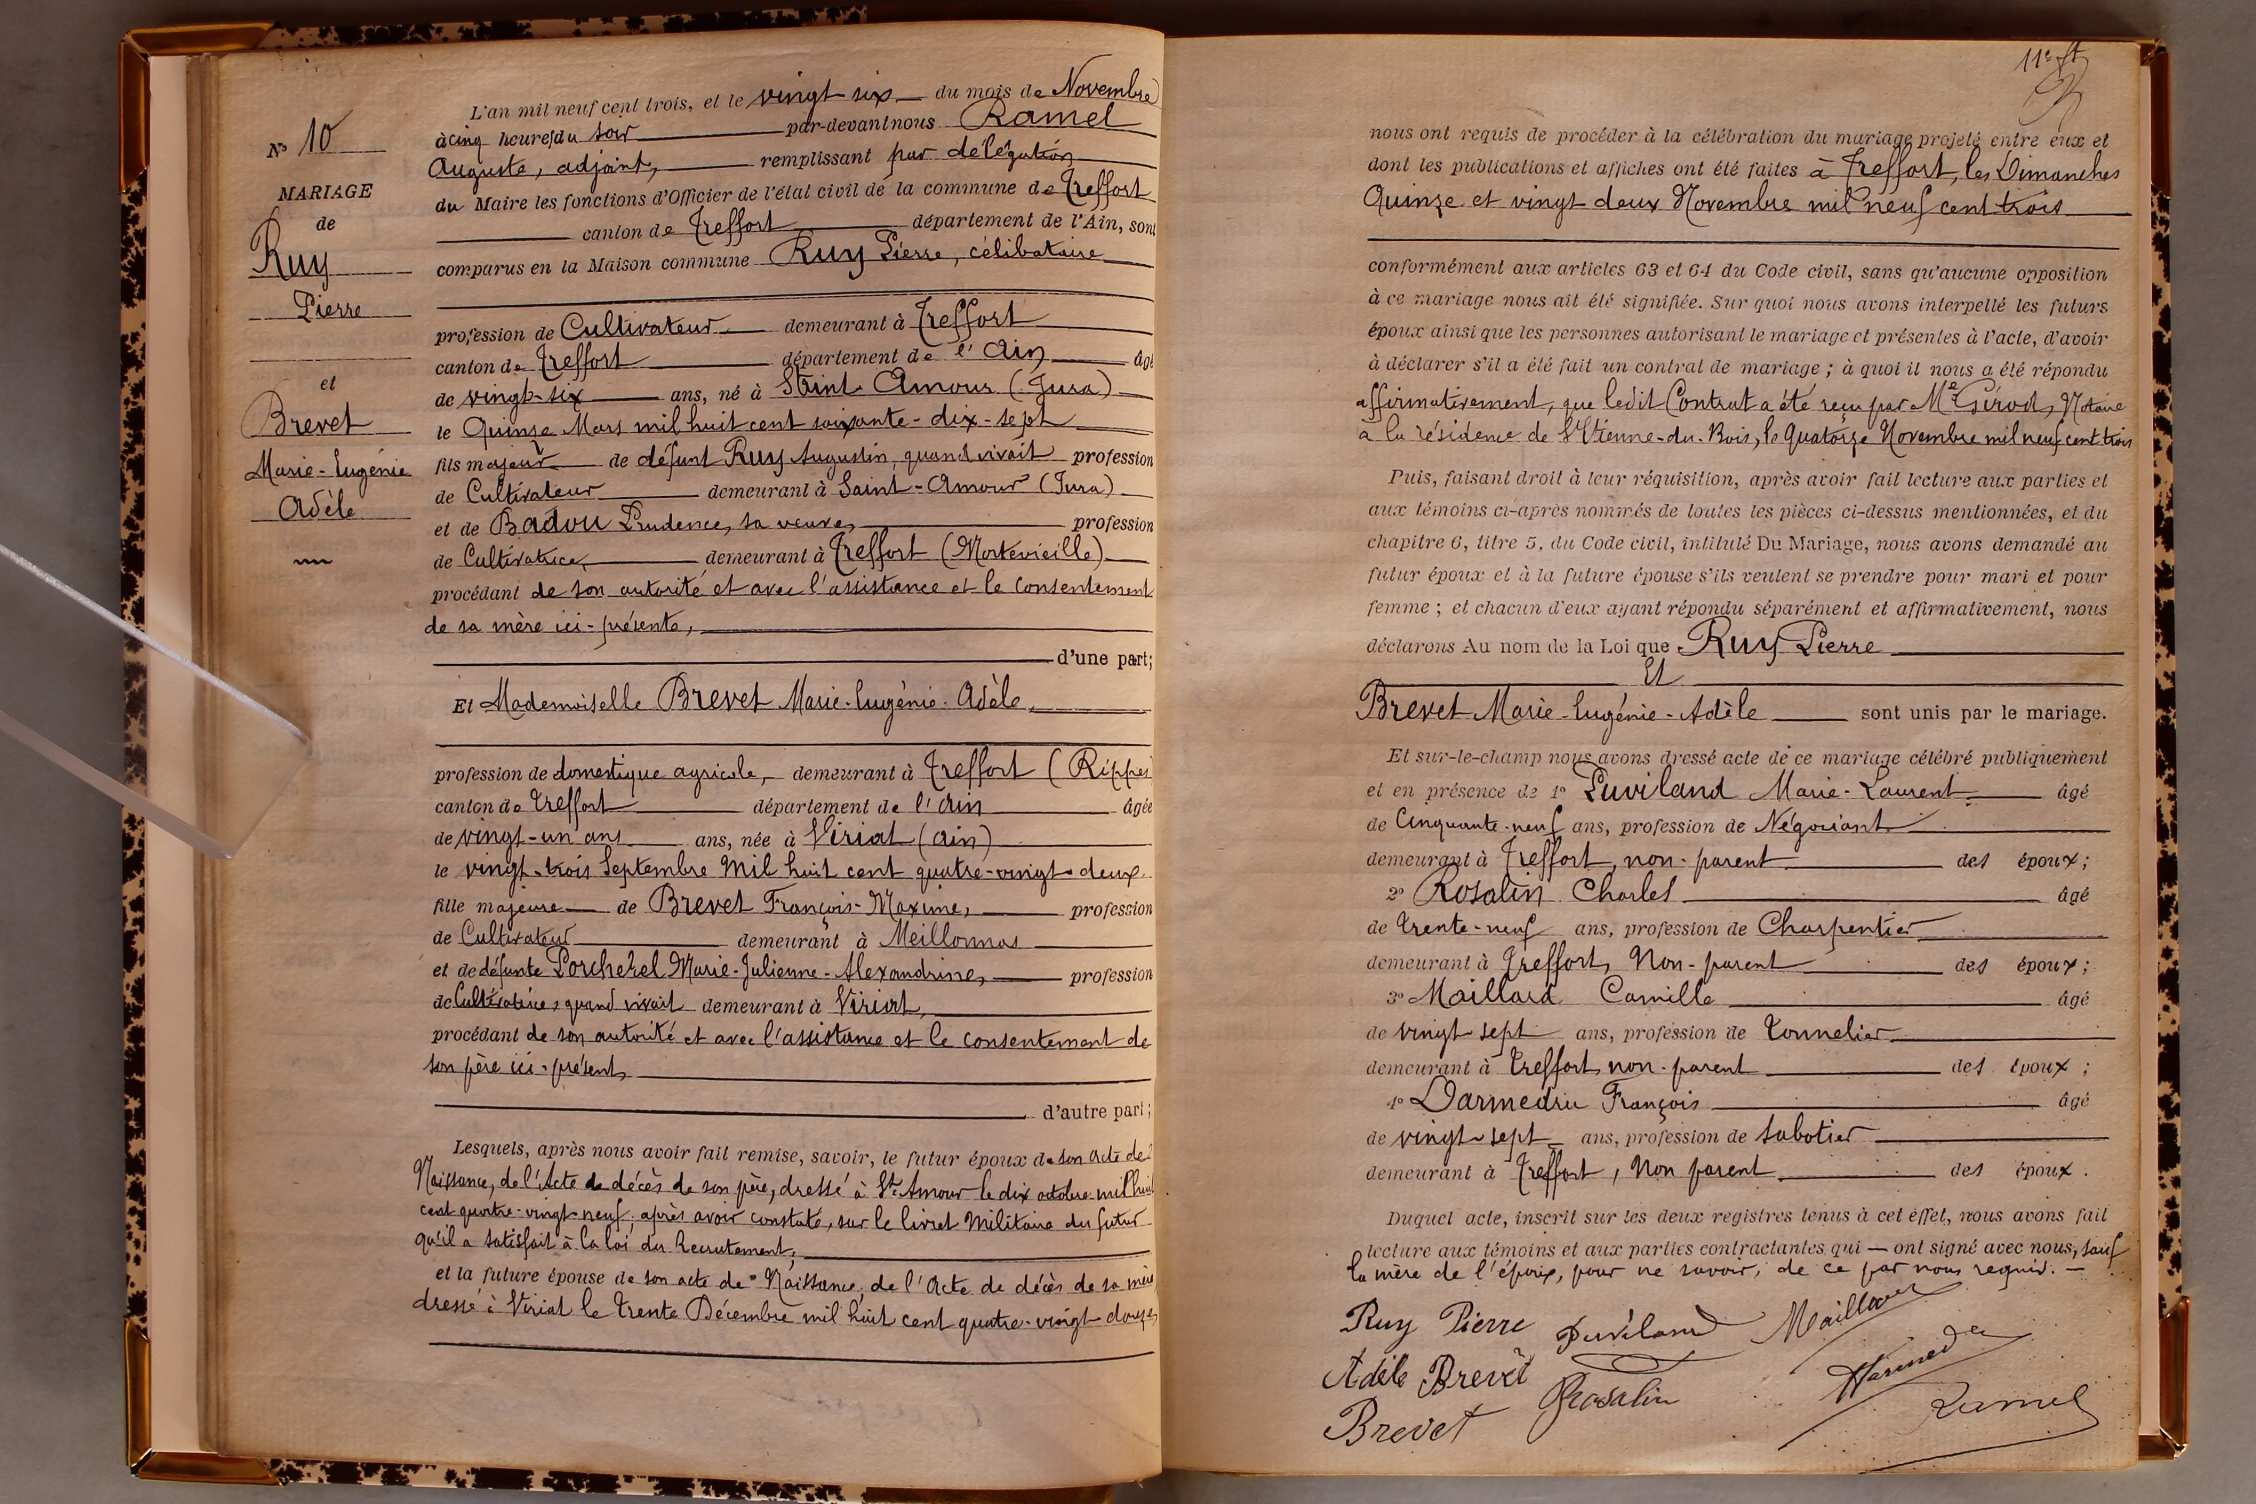 N° 10
MARIAGE
de
Ruy
Pierre
et
Brevet
Marie-Eugénie
Adèle
L'an mil neuf cent trois, et le vingt-six du mois de Novembre
à cinq heures du soir par-devant nous Ramel
Auguste, adjoint, remplissant par délégation
du Maire les fonctions d'Officier de l'état civil de la commune de Treffort
canton de Treffort département de l'Ain, sont
comparus en la Maison commune Ruy Pierre, célibataire
profession de Cultivateur demeurant à Treffort
canton de Treffort département de l'Ain âgé
de vingt-six ans, né à Saint Amour (Jura)
le Quinze Mars mil huit cent soixante-dix-sept
fils majeur de défunt Ruy Augustin, quand vivait profession
de Cultivateur demeurant à Saint-Amour (Jura)
et de Badou Prudence, sa veuve, profession
de Cultivatrice, demeurant à Treffort (Mortevieille)
procédant de son autorité et avec l'assistance et le consentement
de sa mère ici-présente,
d'une part;
Et Mademoiselle Brevet Marie-Eugénie-Adèle,
profession de domestique agricole, demeurant à Treffort (Rippes)
canton de Treffort département de l'Ain âgée
de vingt-un ans ans, née à Viriat (Ain)
le vingt-trois Septembre Mil huit cent quatre-vingt-deux
fille majeure de Brevet François-Maxime, profession
de Cultivateur demeurant à Meillonnas
et de défunte Porcherel Marie-Julienne-Alexandrine, profession
de Cultivatrice, quand vivait demeurant à Viriat,
procédant de son autorité et avec l'assistance et le consentement de
son père ici-présent,
d'autre part;
Lesquels, après nous avoir fait remise, savoir, le futur époux de son acte de
Naissance, de l'Acte de décès de son père, dressé à St Amour le dix octobre mil huit
cent quatre-vingt-neuf; après avoir constaté, sur le livret Militaire du futur
qu'il a satisfait à la loi du Recrutement,
et la future épouse de son acte de Naissance, de l'Acte de décès de sa mère
dressé à Viriat le trente Décembre mil huit cent quatre-vingt-douze,
11e
nous ont requis de procéder à la célébration du mariage projeté entre eux et
dont les publications et affiches ont été faites à Treffort, les Dimanches
Quinze et vingt deux Novembre mil neuf cent trois
conformément aux articles 63 et 64 du Code civil, sans qu'aucune opposition
à ce mariage nous ait été signifiée. Sur quoi nous avons interpellé les futurs
époux ainsi que les personnes autorisant le mariage et présentes à l'acte, d'avoir
à déclarer s'il a été fait un contrat de mariage ; à quoi il nous a été répondu
affirmativement, que ledit Contrat a été reçu par Me Girod, Notaire
à la résidence de St Etienne-du-Bois, le Quatorze Novembre mil neuf cent trois
Puis, faisant droit à leur réquisition, après avoir fait lecture aux parties et
aux témoins ci-après nommés de toutes les pièces ci-dessus mentionnées, et du
chapitre 6, titre 5, du Code civil, intitulé Du Mariage, nous avons demandé au
futur époux et à la future épouse s'ils veulent se prendre pour mari et pour
femme ; et chacun d'eux ayant répondu séparément et affirmativement, nous
déclarons Au nom de la Loi que Ruy Pierre
Et
Brevet Marie-Eugénie-Adèle sont unis par le mariage.
Et sur-le-champ nous avons dressé acte de ce mariage célébré publiquement
et en présence de 1° Puviland Marie-Laurent, âgé
de Cinquante-neuf ans, profession de Négociant
demeurant à Treffort, non-parent des époux;
2° Rosalin Charles âgé
de trente-neuf ans, profession de Charpentier
demeurant à Treffort, Non-parent des époux;
3° Maillard Camille âgé
de vingt-sept ans, profession de tonnelier
demeurant à Treffort non-parent des époux ;
4° Darmedru François âgé
de vingt-sept ans, profession de sabotier
demeurant à Treffort, Non parent des époux.
Duquel acte, inscrit sur les deux registres tenus à cet effet, nous avons fait
lecture aux témoins et aux parties contractantes, qui ont signé avec nous, sauf
la mère de l'époux, pour ne savoir, de ce par nous requis.
Ruy Pierre Puviland Maillard
Adèle Brevet Rosalin Darmedru
Brevet Ramel